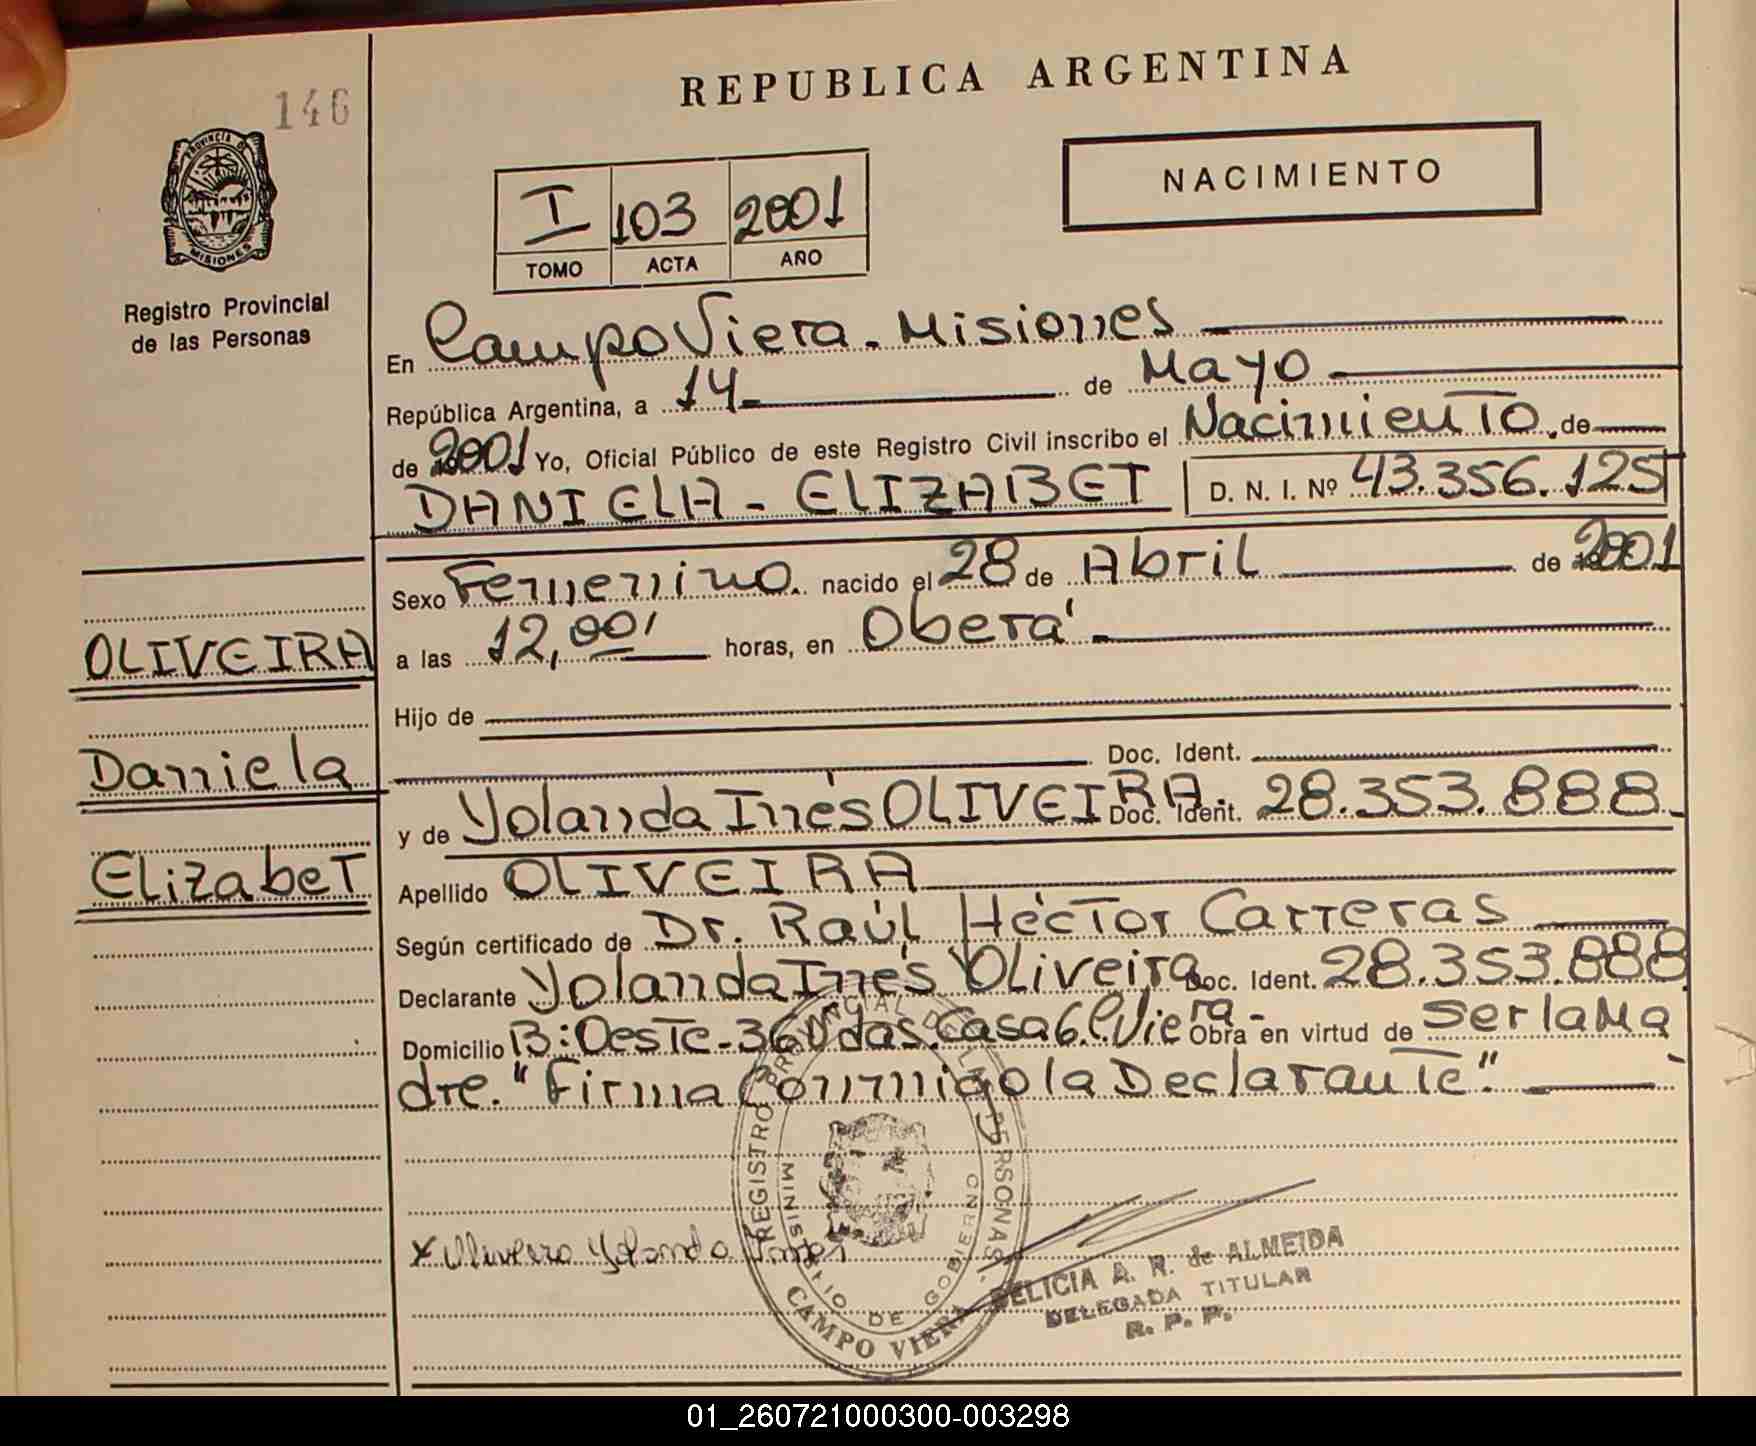 146
REPUBLICA ARGENTINA
PROVINCIA DE
MISIONES
Registro Provincial
de las Personas
NACIMIENTO
I 103 2001
TOMO ACTA AÑO
En Campo Viera - Misiones
República Argentina, a 14 de Mayo
de 2001 Yo, Oficial Público de este Registro Civil inscribo el Nacimiento de
DANIELA - ELIZABET D. N. I. Nº 43.356.125
Sexo Femenino. nacido el 28 de Abril de 2001
a las 12,00' horas, en Oberá
Hijo de
Doc. Ident.
y de Yolanda Inés OLIVEIRA. Doc. Ident. 28.353.888
Apellido OLIVEIRA
Según certificado de Dr. Raúl Héctor Carreras
Declarante Yolanda Inés Oliveira Doc. Ident. 28.353.888
Domicilio B: Oeste - 360 Vdas. Casa 6. C. Viera - Obra en virtud de ser la Ma
dre. "Firma Conmigo la Declarante".
OLIVEIRA
Daniela
Elizabet
x Yolanda
REGISTRO PROVINCIAL DE LAS PERSONAS
MINISTERIO DE GOBIERNO
CAMPO VIERA
DELICIA A. R. de ALMEIDA
DELEGADA TITULAR
R. P. P.
01_260721000300-003298